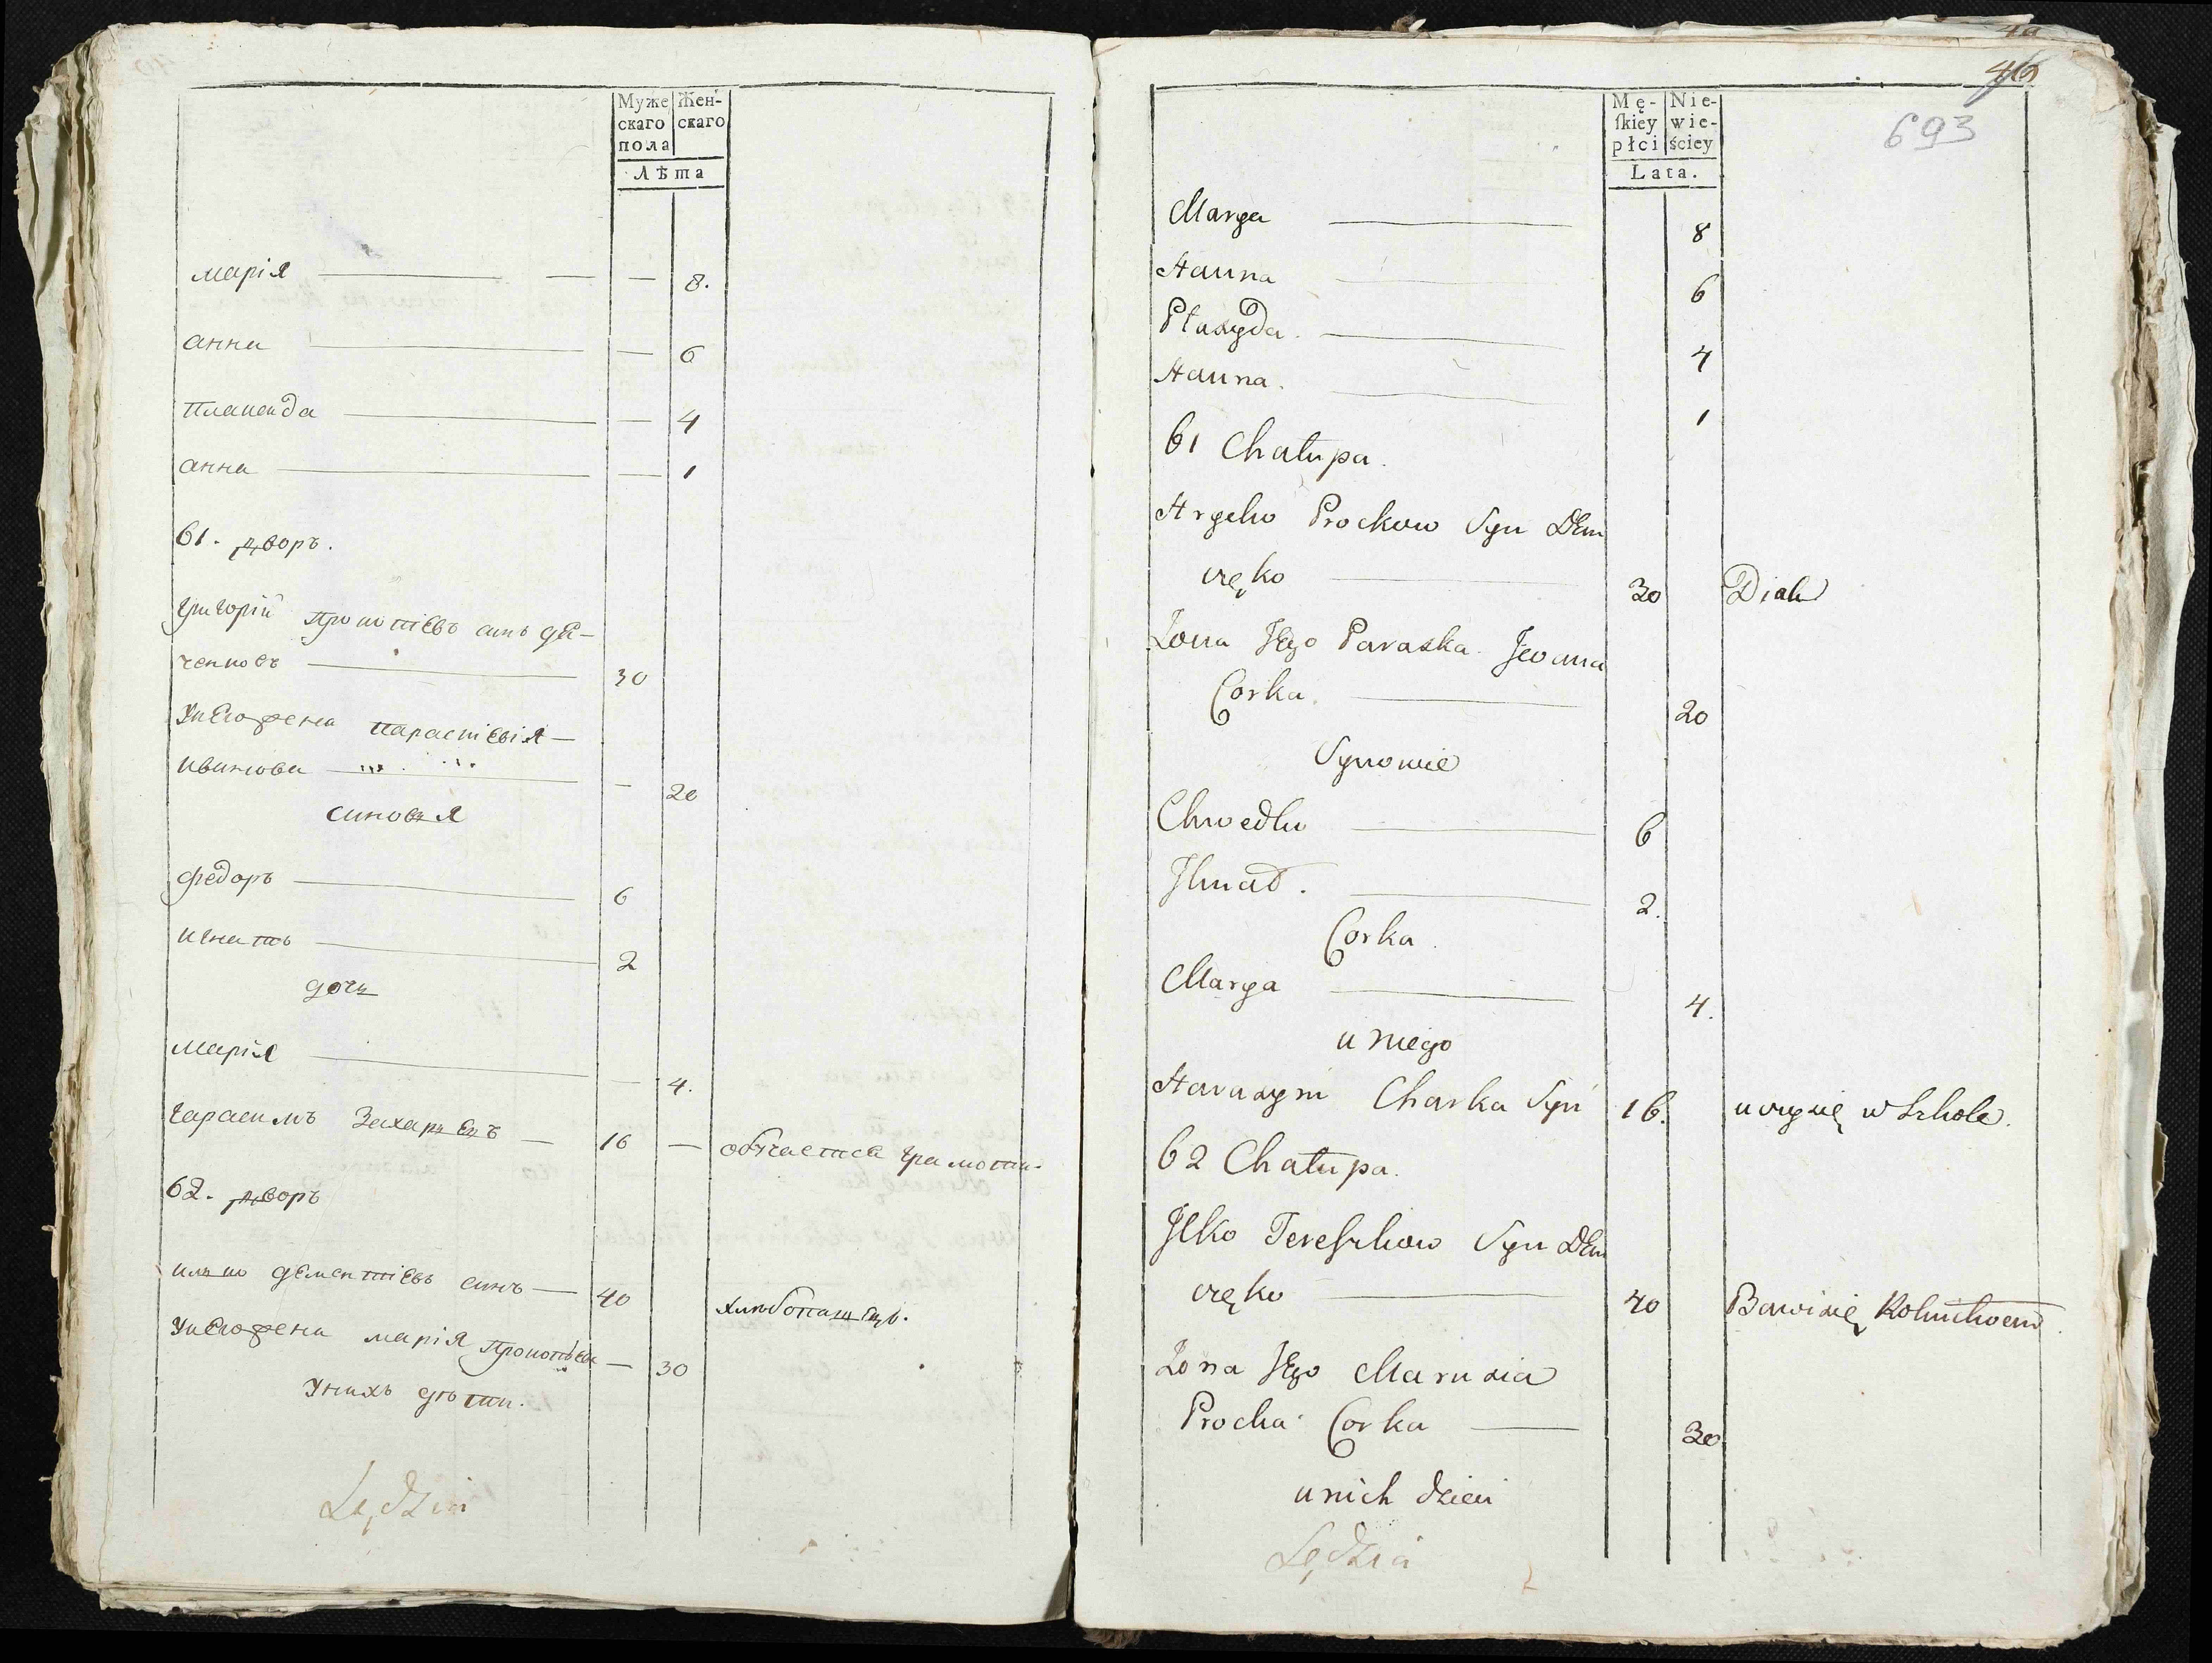 Муже скаго пола
Жен-скаго
Лѣта
марія — — 8.
анна — — 6
Плакида — — 4
анна — — 1
61. дворъ.
григорій прокопіевъ синъ де-
ченковъ — 30
У него жена параскевія —
иванова — — 20
синовья
федоръ — 6
игнатъ — 2
дочь
марія — — 4.
гарасимъ Захарьевъ — 16 — обучается грамоти
62. дворъ
илько дементіевъ синъ — 40 хлѣбопашецъ.
У него жена марія прокопьева — 30
У нихъ дѣти.
Sędzia
40
46
693
Mę-skiey płci
Nie-wie-ściey
Lata.
Marya — 8
Hanna — 6
Płazyda. — 4
Hanna. — 1
61 Chałupa.
Hryho Prockow Syn Dem
częko — 30 Diak
Żona Jego Paraska Jwana
Corka. — 20
Synowie
Chwedko — 6
Jhnat. — 2.
Corka.
Marya — 4.
u niego
Harazym Charka Syn 16. uczy się w Szkole.
62 Chałupa.
Jlko Tereszkow Syn Dem
częko — 40 Bawi się Rolnictwem.
Żona Jego Marusia
Procka Corka — 30
u nich dzieci
Sędzia